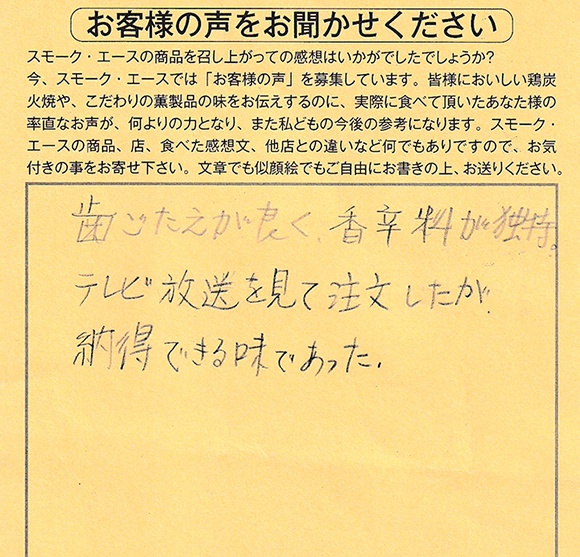 お客様の声をお聞かせください
スモーク・エースの商品を召し上がっての感想はいかがでしたでしょうか?
今、スモーク・エースでは「お客様の声」を募集しています。皆様においしい鶏炭
火焼や、こだわりの薫製品の味をお伝えするのに、実際に食べて頂いたあなた様の
率直なお声が、何よりの力となり、また私どもの今後の参考になります。スモーク・
エースの商品、店、食べた感想文、他店との違いなど何でもありですので、お気
付きの事をお寄せ下さい。文章でも似顔絵でもご自由にお書きの上、お送りください。
歯ごたえが良く、香辛料が独特。
テレビ放送を見て注文したが
納得できる味であった.